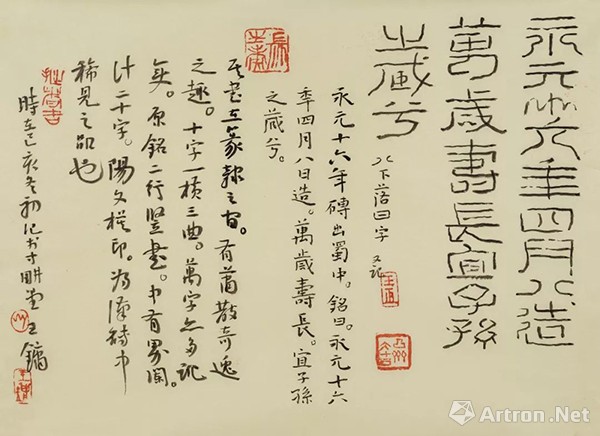 永元十六年四月八造
萬歲壽長宜子孫
之葴兮
八下落日字 又記
永元十六年磚出蜀中。銘曰。永元十六
年四月八日造。萬歲壽長。宜子孫
之葴兮。
其書在篆隸之間。有蕭散奇逸
之趣。十字一橫三曲。萬字亦多訛
矣。原銘二行豎書。中有界闌。
計二十字。陽文模印。為漢磚中
稀見之品也
時在己亥冬初記於寸耕堂王鏞
Artron.Net